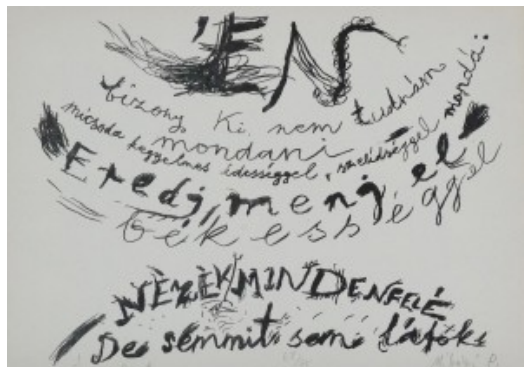 ÉN
bizony ki nem tudnám
mondani
micsoda kegyelmes édességgel, szelídséggel mondá:
Eredj, menj el
békességgel
NÉZÉK MINDENFELÉ
De semmit sem láték